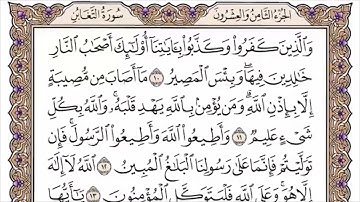 سُورَةُ التَّغَابُنِ
الجُزْءُ الثَّامِنُ وَالعِشْرُونَ
وَٱلَّذِينَ كَفَرُوا۟ وَكَذَّبُوا۟ بِـَٔايَٰتِنَآ أُو۟لَٰٓئِكَ أَصْحَٰبُ ٱلنَّارِ
خَٰلِدِينَ فِيهَا ۖ وَبِئْسَ ٱلْمَصِيرُ ١٠ مَآ أَصَابَ مِن مُّصِيبَةٍ
إِلَّا بِإِذْنِ ٱللَّهِ ۗ وَمَن يُؤْمِنۢ بِٱللَّهِ يَهْدِ قَلْبَهُۥ ۚ وَٱللَّهُ بِكُلِّ
شَىْءٍ عَلِيمٌ ١١ وَأَطِيعُوا۟ ٱللَّهَ وَأَطِيعُوا۟ ٱلرَّسُولَ ۚ فَإِن
تَوَلَّيْتُمْ فَإِنَّمَا عَلَىٰ رَسُولِنَا ٱلْبَلَٰغُ ٱلْمُبِينُ ١٢ ٱللَّهُ لَآ إِلَٰهَ
إِلَّا هُوَ ۚ وَعَلَى ٱللَّهِ فَلْيَتَوَكَّلِ ٱلْمُؤْمِنُونَ ١٣ يَٰٓأَيُّهَا